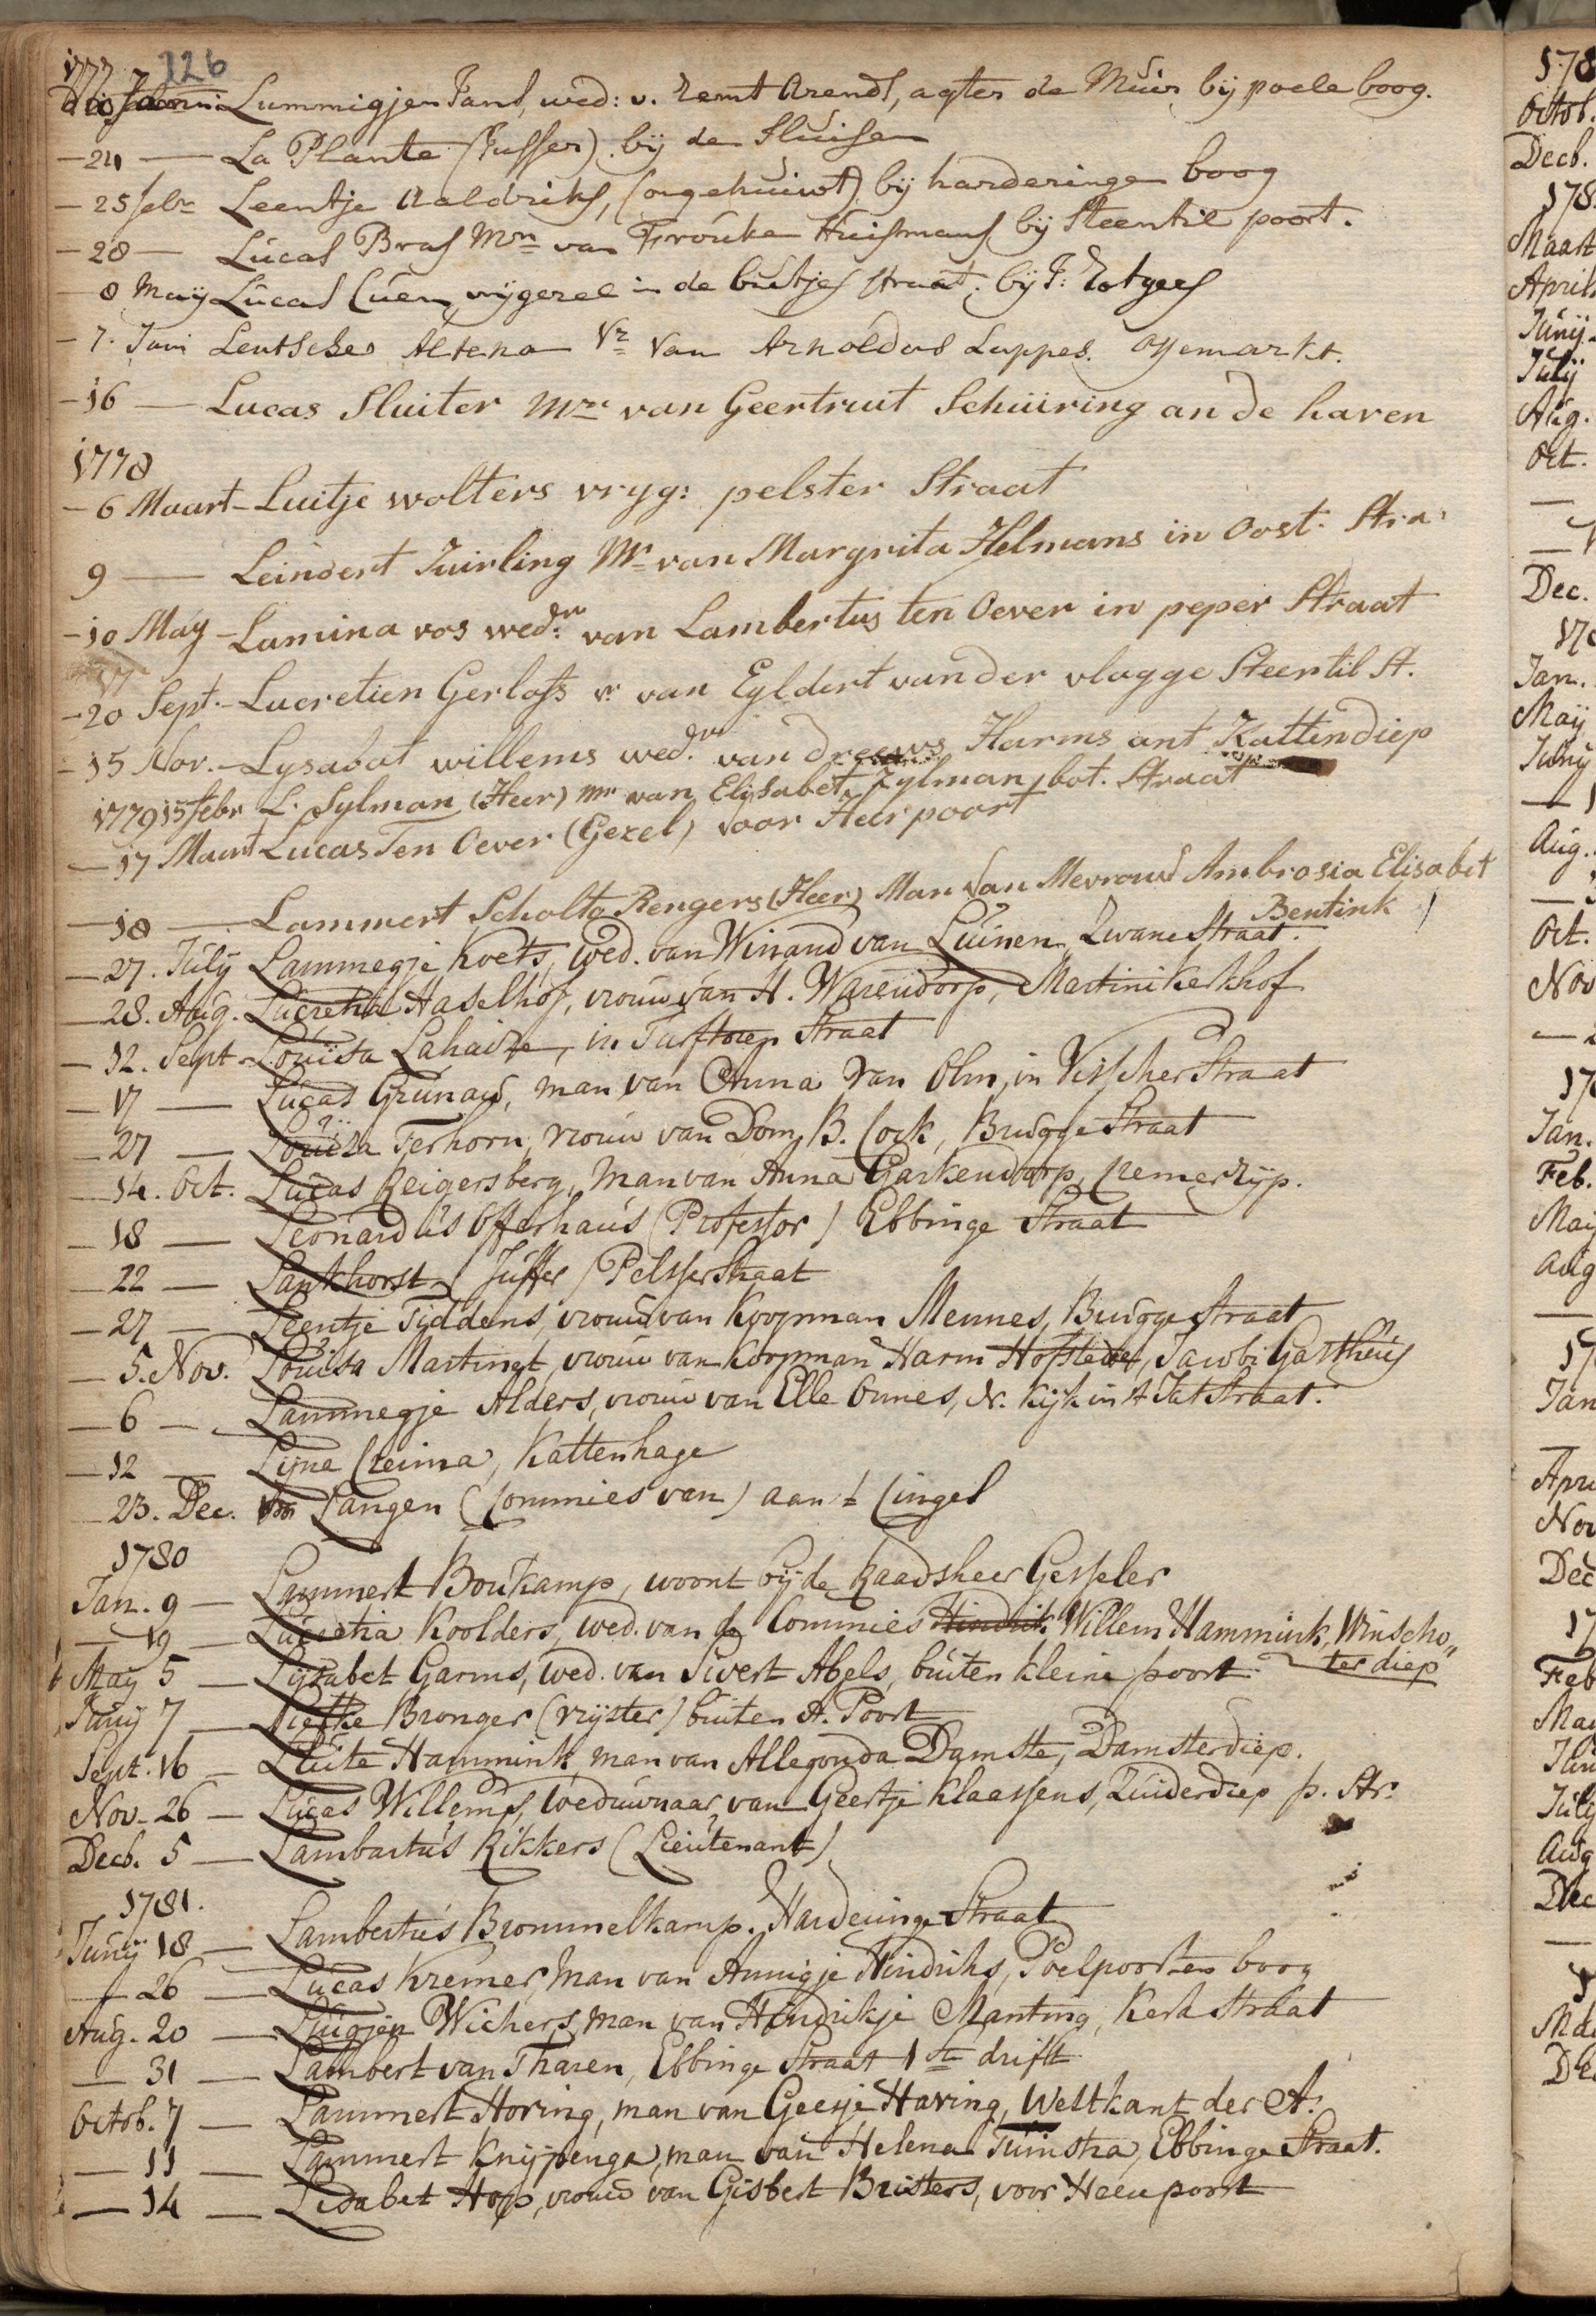 126
1777
Lummigjen Jans, wed: v. remt Arends, agter de Muir bij poele boog.
- 24 — La Plante (Juffer) bij de Sluisen
- 25 febr Leentje Aaldriks, (ongehuiwt) bij harderinge boog
- 28 — Lucas Bras Mn van Frouke Huismans bij Steentil poort.
- 8 Maij Lucas Cuen vrijgezel in de butjes straat. bij J: Rotgers
- 7. Juni Altena Vr Van Arnoldus Luppes.
- 16 — Lucas Sluiter Mn van Geertruit Schüiring an de haven
1778
- 6 Maart - Luitje wolters vryg: pelster Straat
9 — Leindert Tuirling Mr van Margrita Helmans in Oost. Stra:
- 10 May - Lamina vos wedw: van Lambertus ten Oever in peper Straat
- 20 Sept. - Lucretien Gerlofs vr van Eyldert vander vlugge Steentil St.
- 15 Nov. - Lysabat willems wedw. van dreews Harms ant Kattendiep
1779 15 febr L. Sylman (Heer) mn van Elisabet Zylman, bot. Straat
- 17 Maart Lucas Ten Oever (Gezel) voor Heer poort
- 18 — Lammert Scholto Rengers (Heer) Man van Mevrouw Ambrosia Elisabet
Bentink
- 27. July Lammegje Koets, wed. van Winand van Luinen Zwane Straat.
- 28. Aug. Lucretia Haselhof, vrouw van H. Warendorp, Martinikerkhof
- 12. Sept. Louisa Lahaize, in Turftoren Straat
- 17 — Lucas Grunau, man van Anna Van Olm, in Visscher Straat
- 27 — Louiza Terhorn, vrouw van Dom. B. Cock, Brugge Straat
- 14. Oct. Lucas Reigersberg, Man van Anna Garkendorp, Cremer rijp.
- 18 — Leonardus Offerhaus (Professor) Ebbinge Straat
- 22 — Lankhorst (Juffer) Pelster Straat
- 27 — Leentje Tiddens, vrouw van Koopman Mennes, Brugge straat
- 5. Nov. Louisa Martinet, vrouw van Koopman Harm Hofstede, Jacobi Gasthuis
- 6 — Lammegje Alders, vrouw van Elle Onnes, N. Kijk in 't Jat Straat.
- 12 — Lijne Creima, Kattenhage
- 23. Dec. Langen (Commies van) aan 't Cingel
1780
Jan. 9 — Lammert Boukamp, woont bij de Raadsheer Gesseler
- 19 — Lucretia Koolders, wed. van de Commies Hindrik Willem Hammink, Winscho„
May 5 — Lijsabet Garms, wed. van Sivert Abels, buiten kleine poort. ter diep
Junij 7 — Liefke Bronger (vrijster) buiten A. Poort
Sept. 16 — Luite Hammink, man van Allegonda Damste, Damsterdiep.
Nov. 26 — Lucas Willems, weduwnaar van Geertje Klaassens, Zuiderdiep p. Str.
Decb. 5 — Lambartus Rikkers (Lieutenant)
1781.
Junij 18 — Lambertus Brommelkamp. Harderinge Straat
- 26 — Lucas Kremer, Man van Annigje Hindriks, Poelpoorten boog
Aug. 20 — Luigjen Wichers, man van Hindrikje Manting, Kerk Straat
- 31 — Lambert van Tharen, Ebbinge Straat 1ste drift
Octob. 7 — Lammert Horing, man van Geesje Having, Westkant der A.
- 11 — Lammert Knijpenga, man van Helena Tuinstra, Ebbinge Straat.
- 14 — Lisabet Hop, vrouw van Gisbert Brusters, voor Heere poort
178
Octob.
Decb.
178
Maart
April
Junij
Julij
Aug.
Oct.
Dec.
Jan.
Maij
Aug.
Oct.
Nov
Jan.
Feb.
Maij
Aug
Jan
Apri
Nov
Dec
Feb
Aug
Dec